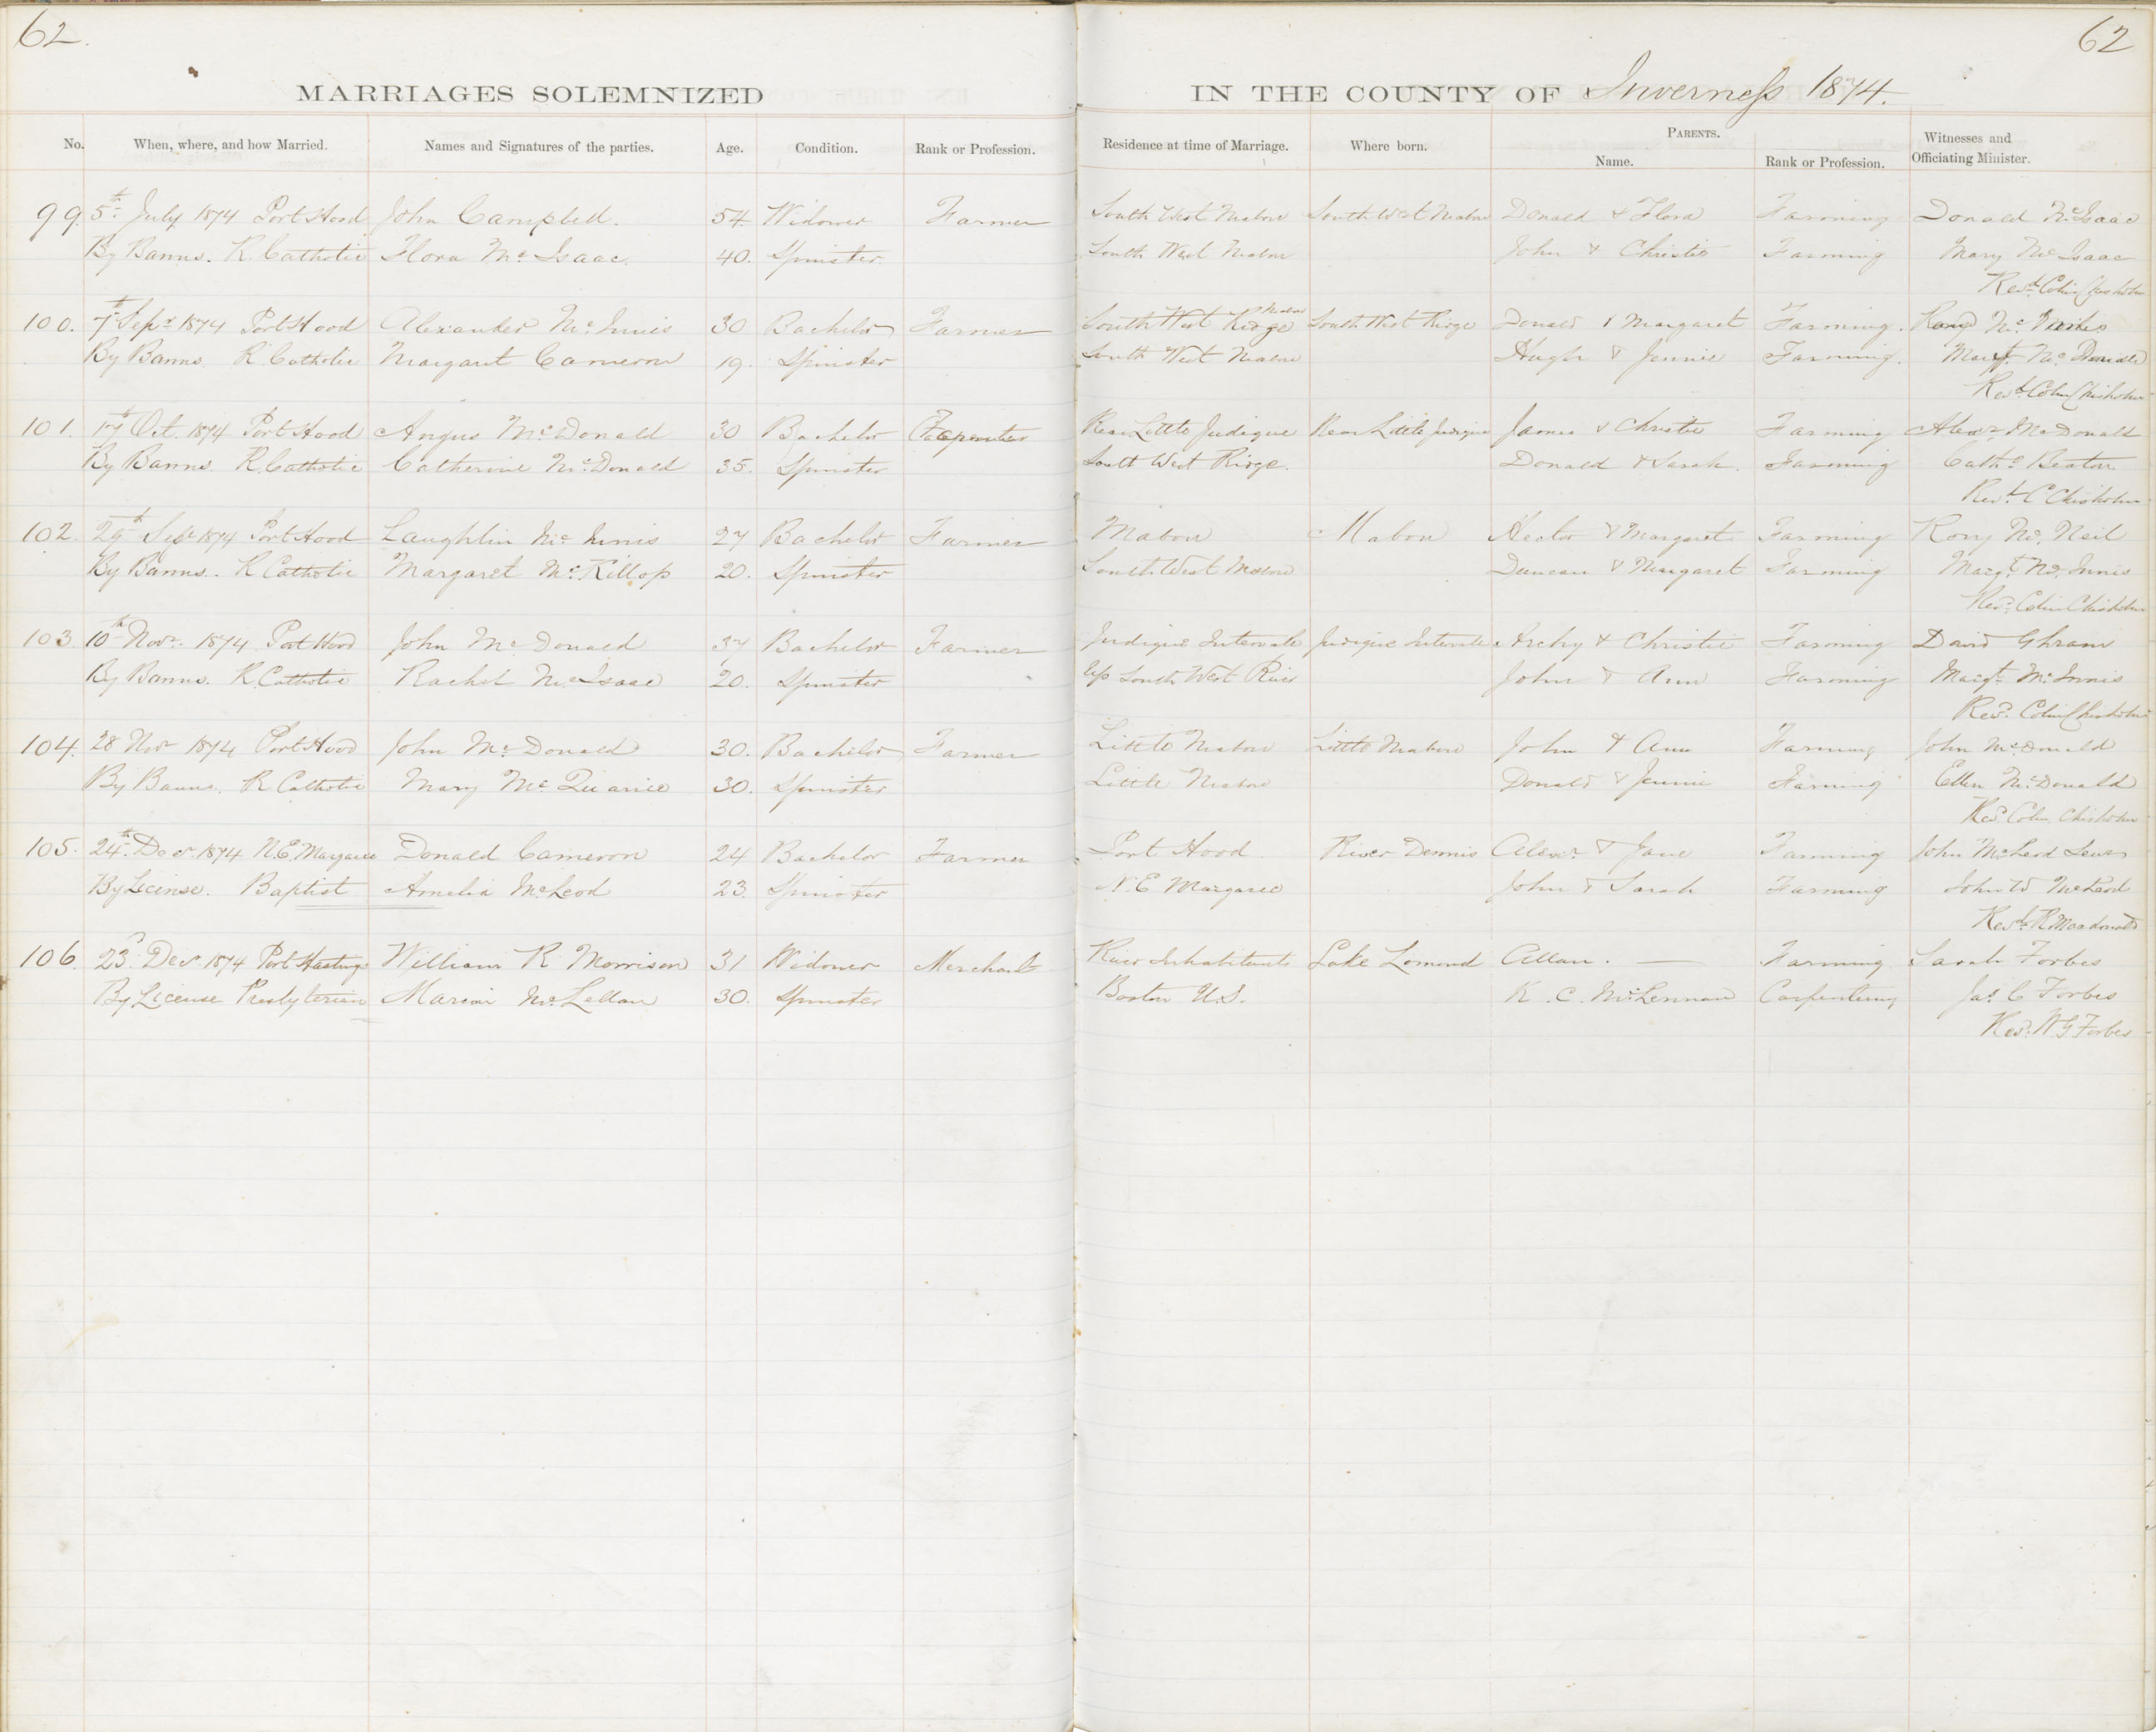 62.
62
MARRIAGES SOLEMNIZED IN THE COUNTY OF Inverness 1874.
No. When, where, and how Married. Names and Signatures of the parties. Age. Condition. Rank or Profession. Residence at time of Marriage. Where born. PARENTS. Name. Rank or Profession. Witnesses and Officiating Minister.
99. 5th July 1874 Port Hood John Campbell. 54. Widower Farmer South West Mabou South West Mabou Donald & Flora Farming Donald McIsaac
By Banns. R. Catholic Flora McIsaac. 40. Spinster South West Mabou John & Christie Farming Mary McIsaac
Revd. Colin Chisholm
100. 7th Sepr 1874 Port Hood Alexander McInnis 30 Bachelor Farmer South West Ridge Mabou South West Ridge Donald & Margaret Farming. Mc
By Banns. R. Catholic Margaret Cameron 19. Spinster South West Mabou Hugh & Jennie Farming. Margt. McDonald
Revd. Colin Chisholm
101. 17th Oct. 1874 Port Hood Angus McDonald 30 Bachelor Rear Little Judique Rear Little Judique James & Christie Farming Alexr. McDonald
By Banns. R. Catholic Catherine McDonald 35. Spinster South West Ridge. Donald & Sarah. Farming Cathe Beaton
Revd. C Chisholm
102. 29th Sept 1874 Port Hood Laughlin McInnis 27 Bachelor Farmer Mabou Mabou Hector & Margaret Farming Rory McNeil
By Banns. R Catholic Margaret McKillop 20. Spinster South West Mabou Duncan & Margaret Farming Margt. McInnis
Revd. Colin Chisholm
103. 10th Novr. 1874 Port Hood John McDonald 37 Bachelor Farmer Judique Intervale Judique Intervale Archy & Christie Farming David Ghram
By Banns. R. Catholic Rachel McIsaac 20. Spinster Up South West River John & Ann Farming Margt. McInnis
Revd. Colin Chisholm
104. 28 Novr 1874 Port Hood John McDonald 30. Bachelor Farmer Little Mabou Little Mabou John & Ann Farming John McDonald
By Banns. R Catholic Mary McQuarie 30. Spinster Little Mabou Donald & Jennie Farming Ellen McDonald
Revd. Colin Chisholm
105. 24th. Decr. 1874 N.E. Margaree Donald Cameron 24 Bachelor Farmer Port Hood River Dennis Alexr. & Jane Farming John McLeod Senr
By License. Baptist Amelia McLeod 23. Spinster N.E Margaree John & Sarah Farming John W McLeod
Revd. R Macdonald
106. 23d. Decr. 1874 Port Hastings William R Morrison 31 Widower Merchant River Inhabitants Lake Lomond Allan. — Farming Sarah Forbes
By License Presbyterian Marion McLellan 30. Spinster Boston U.S. K. C. McLennan Carpentering Jas. C Forbes
Revd. W G Forbes